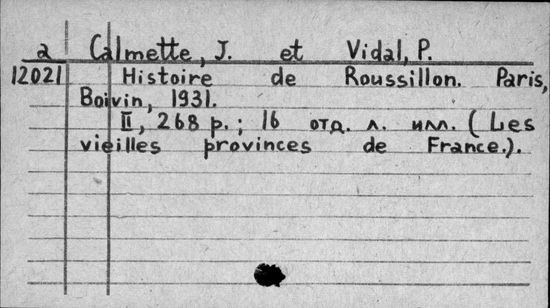 a Calmette, J. et Vidal, P.
12021 Histoire de Roussillon. Paris,
Boivin, 1931.
II, 268 p.; 16 отд. л. илл. (Les
vieilles provinces de France.).